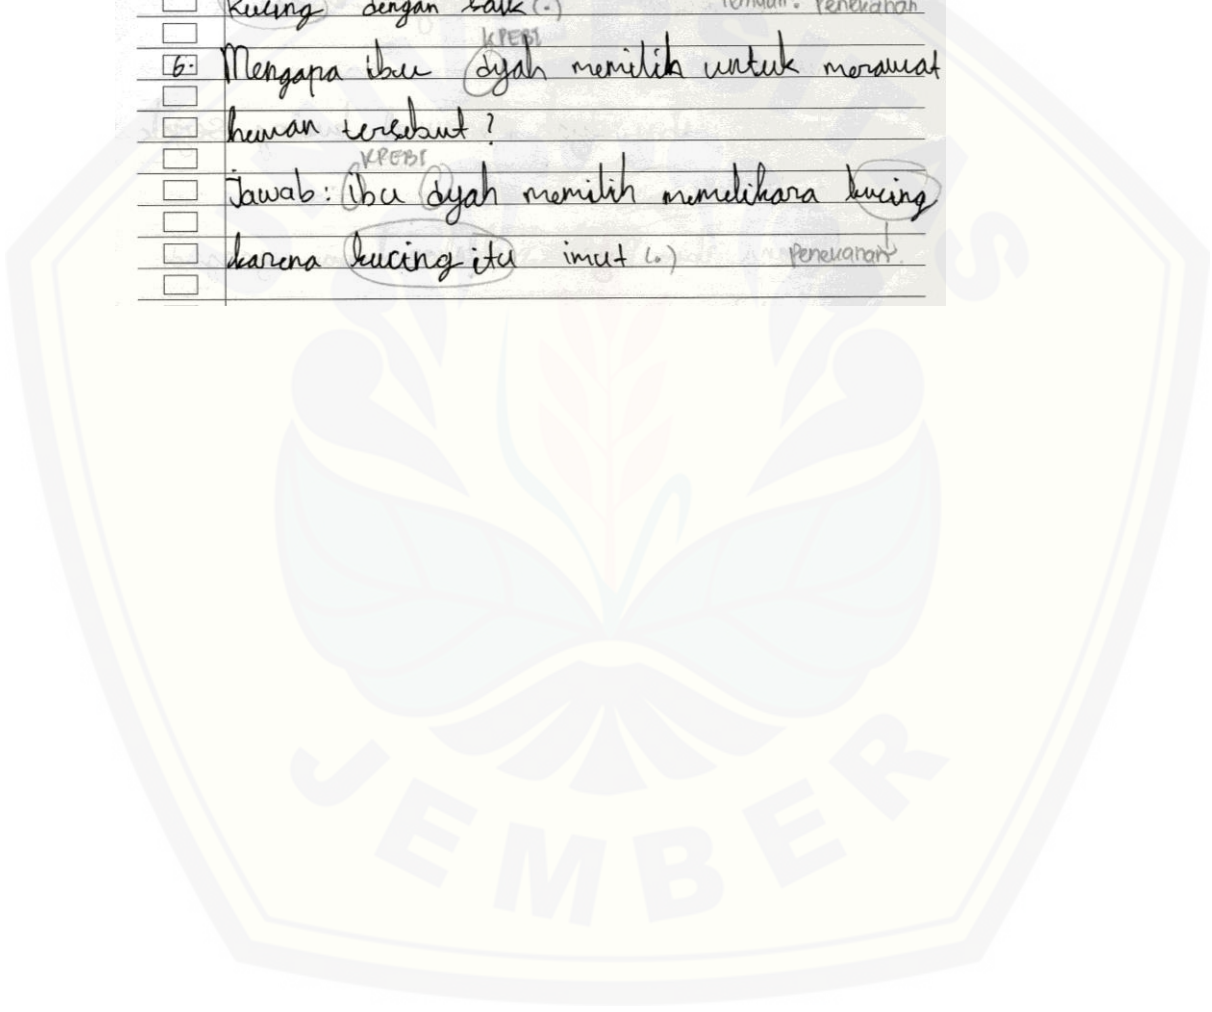 kucing dengan baik (.)
Penekanan
KPEBI
6. Mengapa ibu dyah memilih untuk merawat
hewan tersebut?
KPEBI
Jawab: ibu dyah memilih memelihara kucing
karena kucing itu imut (.) Penekanan.
JEMBER